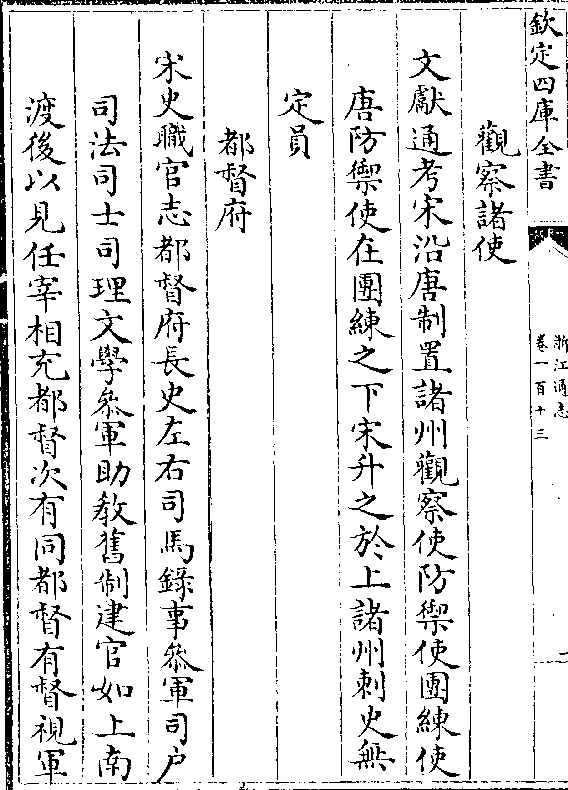 欽定四庫全書
浙江通志
卷一百十三
觀察諸使
文獻通考宋沿唐制置諸州觀察使防禦使團練使
唐防禦使在團練之下宋升之於上諸州刺史無
定員
都督府
宋史職官志都督府長史左右司馬錄事叅軍司户
司法司士司理文學叅軍助教舊制建官如上南
渡後以見任宰相充都督次有同都督有督視軍